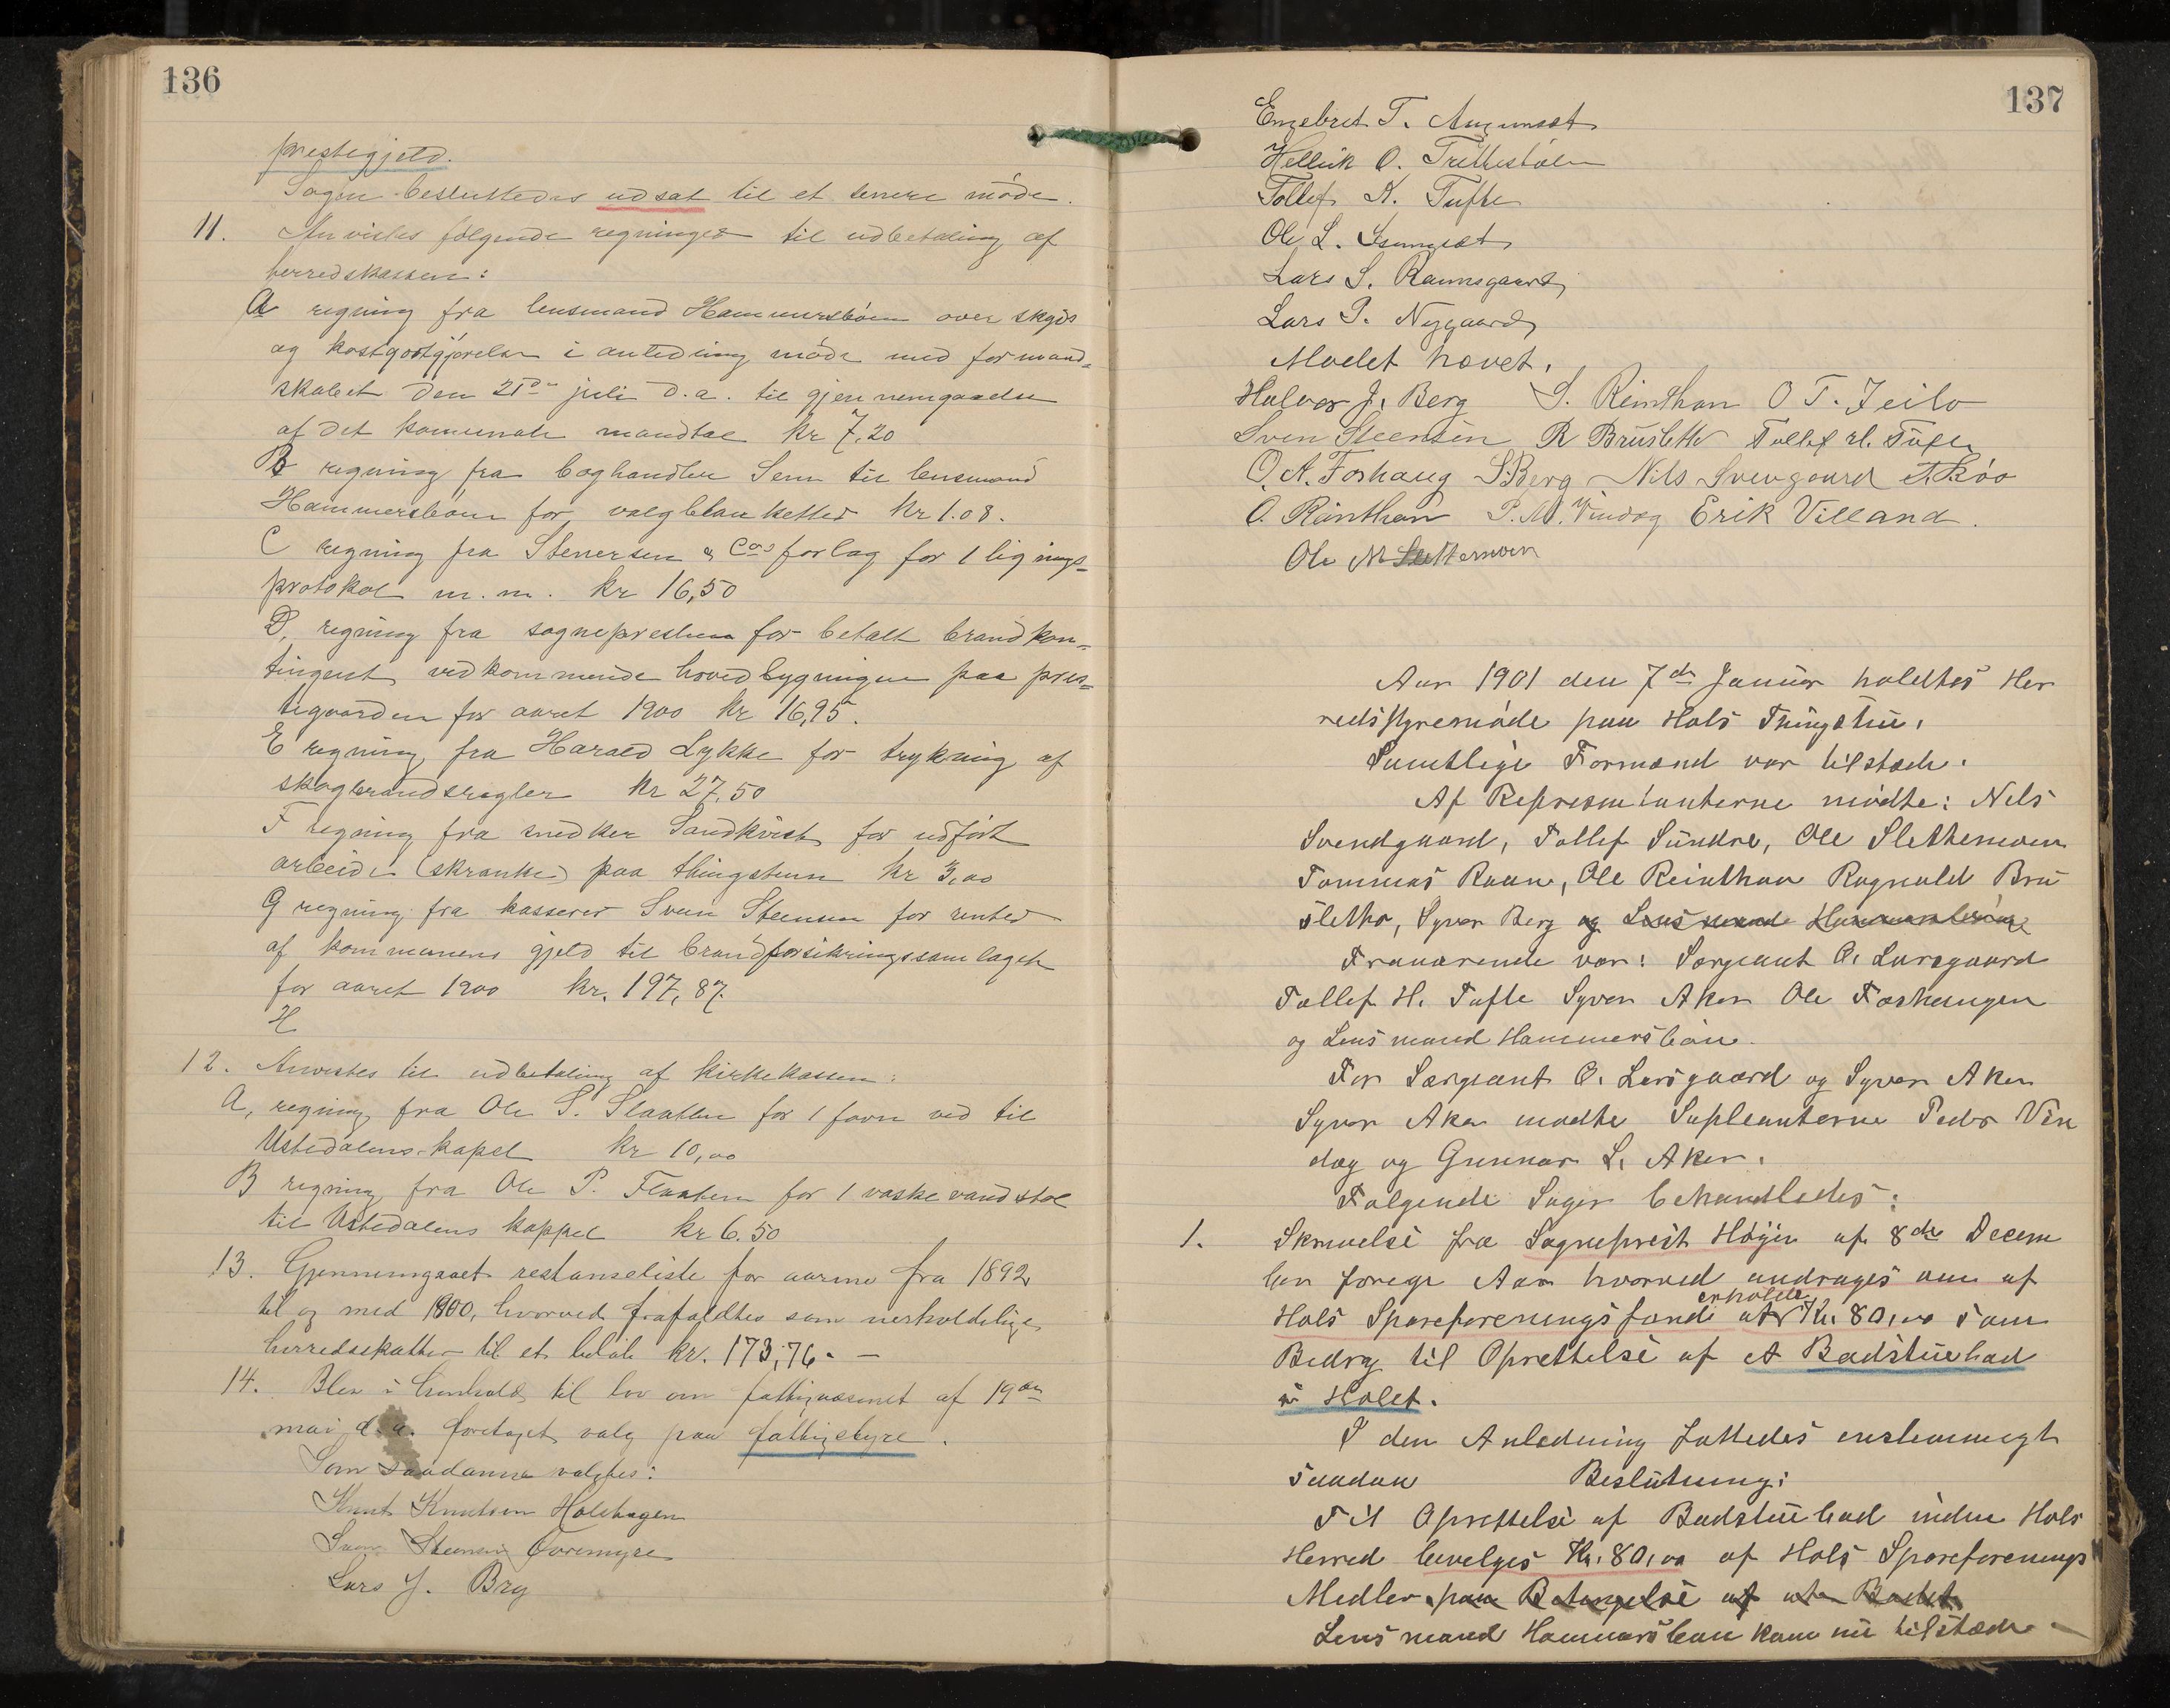 136
prestegjeld.
Sagen besluttedes udsat til et senere møde.
11. Anvistes følgende regninger til udbetaling af
herredskassen:
A regning fra lensmand Hammersbøen over skyds
og kostgodtgjørelse i anledning møde med formand-
skabet den 21de juli d.a. til gjennemgaaelse
af det komunale mandtal kr 7,20
B regning fra boghandler Senn til lensmand
Hammersbøen for valgblanketter kr 1.08.
C regning fra Stenersen & Cos forlag for 1 lignings-
protokol m.m. kr 16,50
D, regning fra sognepresten for betalt brandkon-
tingent vedkommende hovedbygningen paa pres-
tegaarden for aaret 1900 kr 16,95.
E regning fra Harald Lykke for trykning af
skogbrandsregler kr 27,50
F regning fra snedker Sandkvist for udført
arbeide (skranke) paa thingstuen kr 3,00
G regning fra kasserer Svein Steensen for renter
af kommunens gjeld til brandforsikringssamlaget
for aaret 1900 kr. 197,87.
H
12. Anvistes til udbetaling af kirkekassen:
A, regning fra Ole S. Slaatten for 1 favn ved til
Ustedalens kapel kr 10,00
B regning fra Ole P. Flaaten for 1 vaskevandstol
til Ustedalens kappel kr 6.50
13. Gjennemgaaet restanseliste for aarene fra 1892
til og med 1900, hvorved frafaldtes som uerholdelige
herredsskatter til et beløb kr. 173,76. —
14. Blev i henhold til lov om fattigvæsenet af 19de
mai d.a. foretaget valg paa fattigstyre.
Som saadanne valgtes:
Knut Knutsen Holehagen
Sven Steensen Øvremyre
Lars J. Brg
137
Engebret T. Augunset
Hellik O. Trettestølen
Tollef K. Tufte
Ole L.
Lars S. Raunsgaard
Lars P. Nygaard
Mødet hævet.
Halvor J. Berg S. Reinthon O T. Jeilo
Sven Steensen R Bruslette Tollef H. Tufte
O. A. Forhaug S. Berg Nils Svengaard
O. Reinthon P. M. Vindeg Erik Villand.
Ole M Slettemoen
Aar 1901 den 7de Januar holdtes Her
redsstyremøde paa Hols Thingstue.
Samtlige Formænd var tilstæde.
Af Repræsentanterne mødte: Nils
Svendgaard, Tollef Sundre, Ole Slettemoen
Tommas Raaen, Ole Reinthon Ragnvald Bru
sletto, Syver Berg og Lensmand Hammersbøen
Fraværende var: Sergeant O. Larsgaard
Tollef H. Tufte Syver Aker Ole Forhaugen
og Lensmand Hammersbøen.
For Sergeant O. Larsgaard og Syver Aker
Syver Aker mødte Supleanterne Peder Vin
deg og Gunnar L. Aker.
Følgende Sager behandledes:
1. Skrivelse fra Sogneprest Høyer af 8de Decem
ber forrige Aar hvorved andrages om af
Hols Spareforenings fond at erholde Kr. 80,00 som
Bidrag til Oprettelse af et Badstuebad
i Holet.
I den Anledning fattedes enstemmigt
saadan Beslutning:
Til Oprettelse af Badstuebad inden Hols
Herred bevilges Kr. 80,00 af Hols Spareforenings
Midler paa Betingelse af at Badet
Lensmand Hammersbøen kom nu tilstæde —